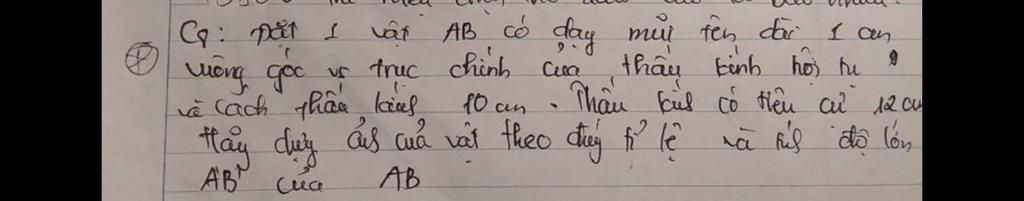 C9: Đặt 1 vật AB có dạg mũi tên dài 1 cm
vuông góc vs trục chính của thấu kính hội tụ
và cách thấu kính 10 cm. Thấu kính có tiêu cự 12 cm
Hãy dựg ảnh của vật theo đúg tỉ lệ và tính độ lớn
A'B' của AB